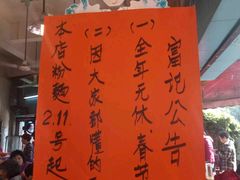 富记公告
(一)全年无休.春节
(二)因大家都懂的
本店粉麵2.11号起